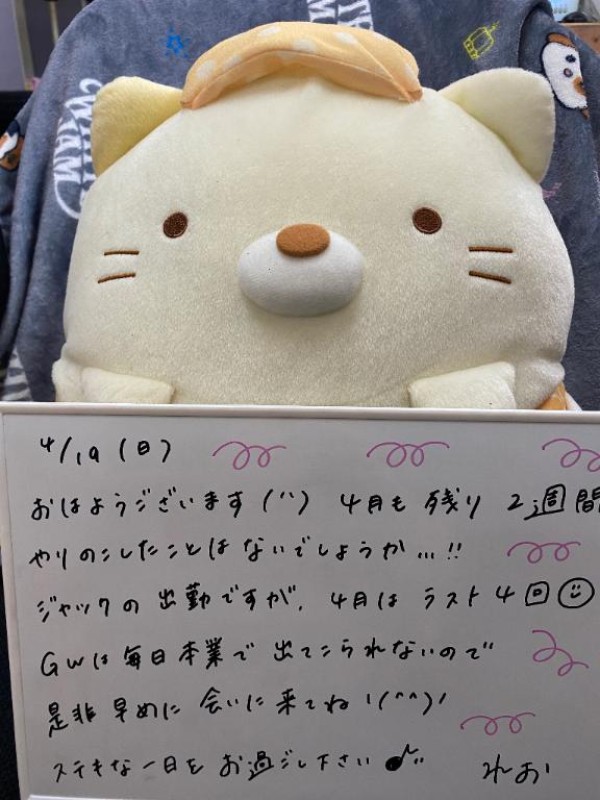 4/19 (日)
おはようございます(^^) 4月も残り2週間
やりのこしたことはないでしょうか...!!
ジャックの出勤ですが、4月はラスト4回☺
GWは毎日本業で出てこられないので
是非早めに会いに来てね！(^^)！
ステキな一日をお過ごし下さい♪
れお